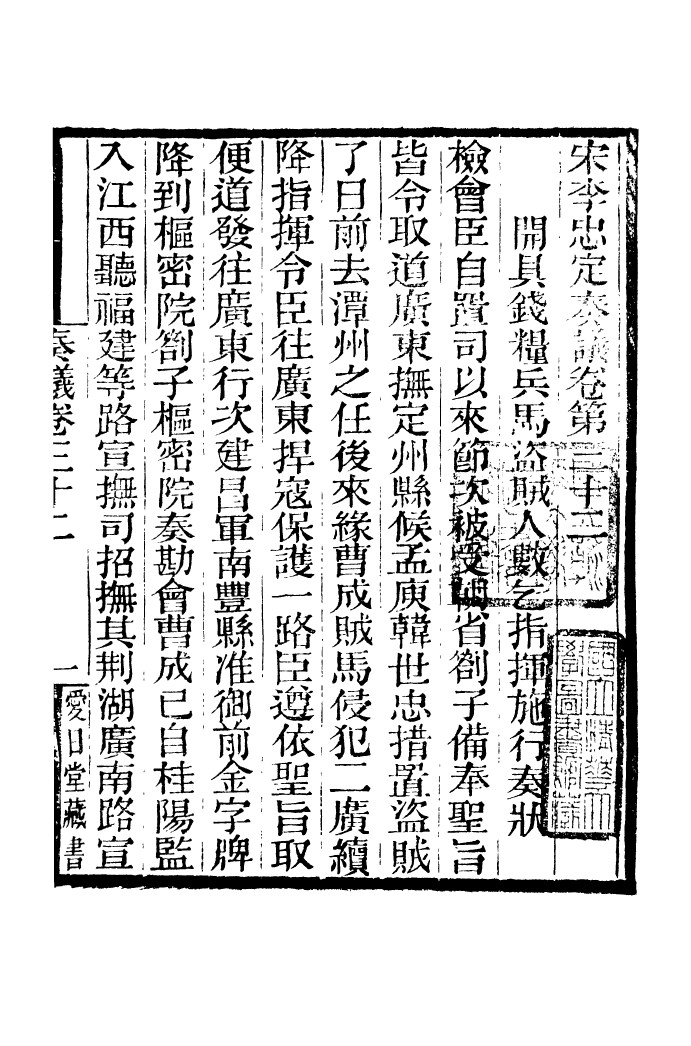 宋李忠定奏議卷第三十二
開具錢糧兵馬盜賊人數乞指揮施行奏狀
檢會臣自置司以來節次被受省劄子備奉聖旨
皆令取道廣東撫定州縣候孟庾韓世忠措置盜賊
了日前去潭州之任後來緣曹成賊馬侵犯二廣續
降指揮令臣往廣東捍寇保護一路臣遵依聖旨取
便道發往廣東行次建昌軍南豐縣准御前金字牌
降到樞密院劄子樞密院奏勘會曹成已自桂陽監
入江西聽福建等路宣撫司招撫其荆湖廣南路宣
奏議卷三十二
一
愛日堂藏書
國立清華大學圖書館藏